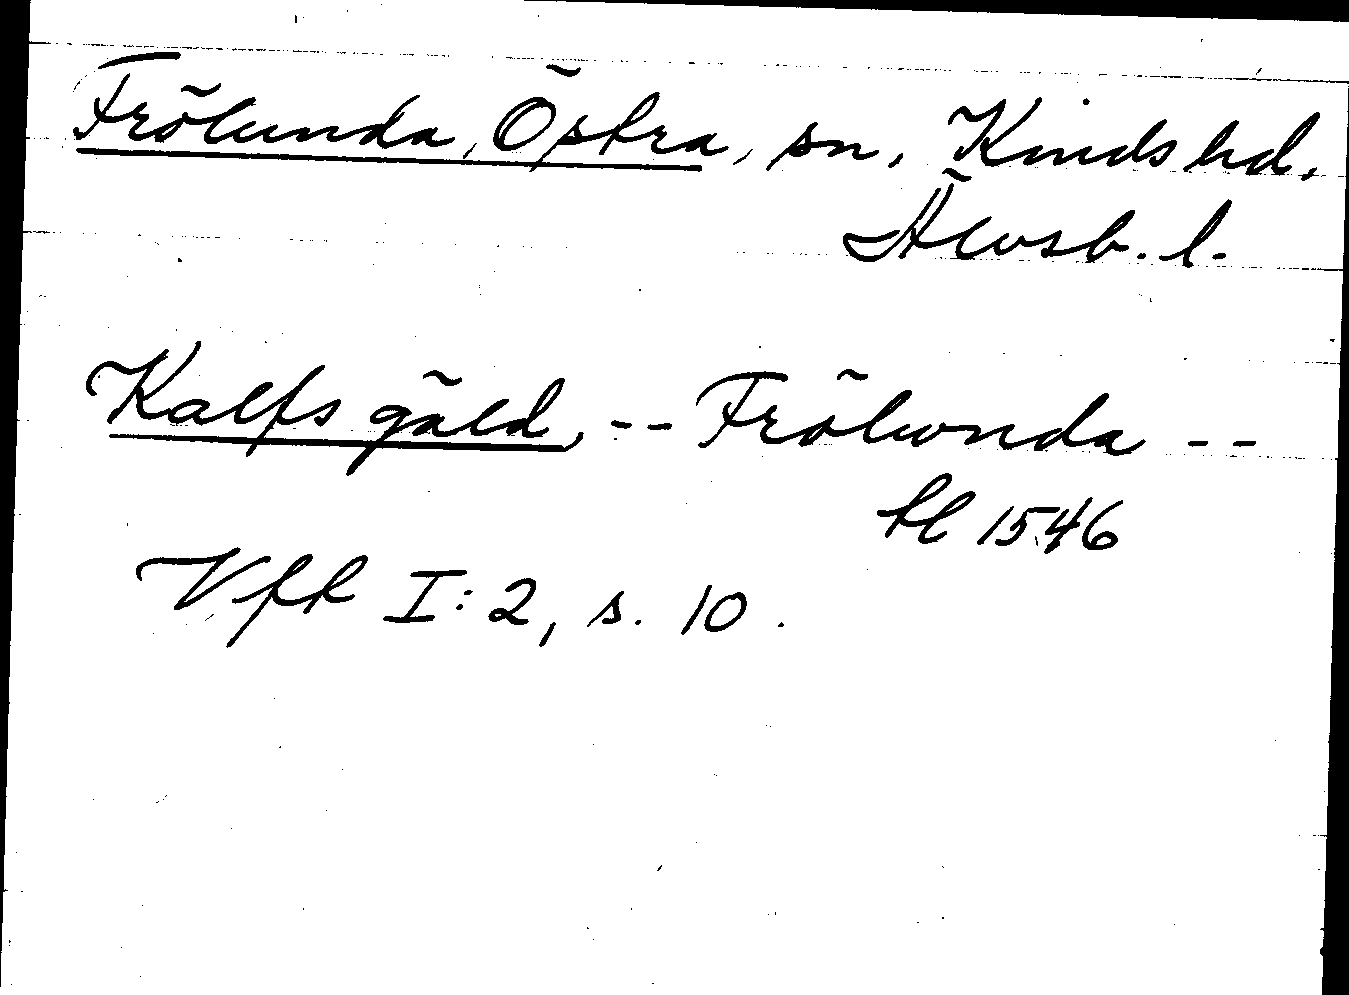 Frölunda, Östra, sn, Kinds hd.
Älvsb. l.
Kalfs gäld, -- Frölunda --
fl 1546
Vfr I:2, s. 10.